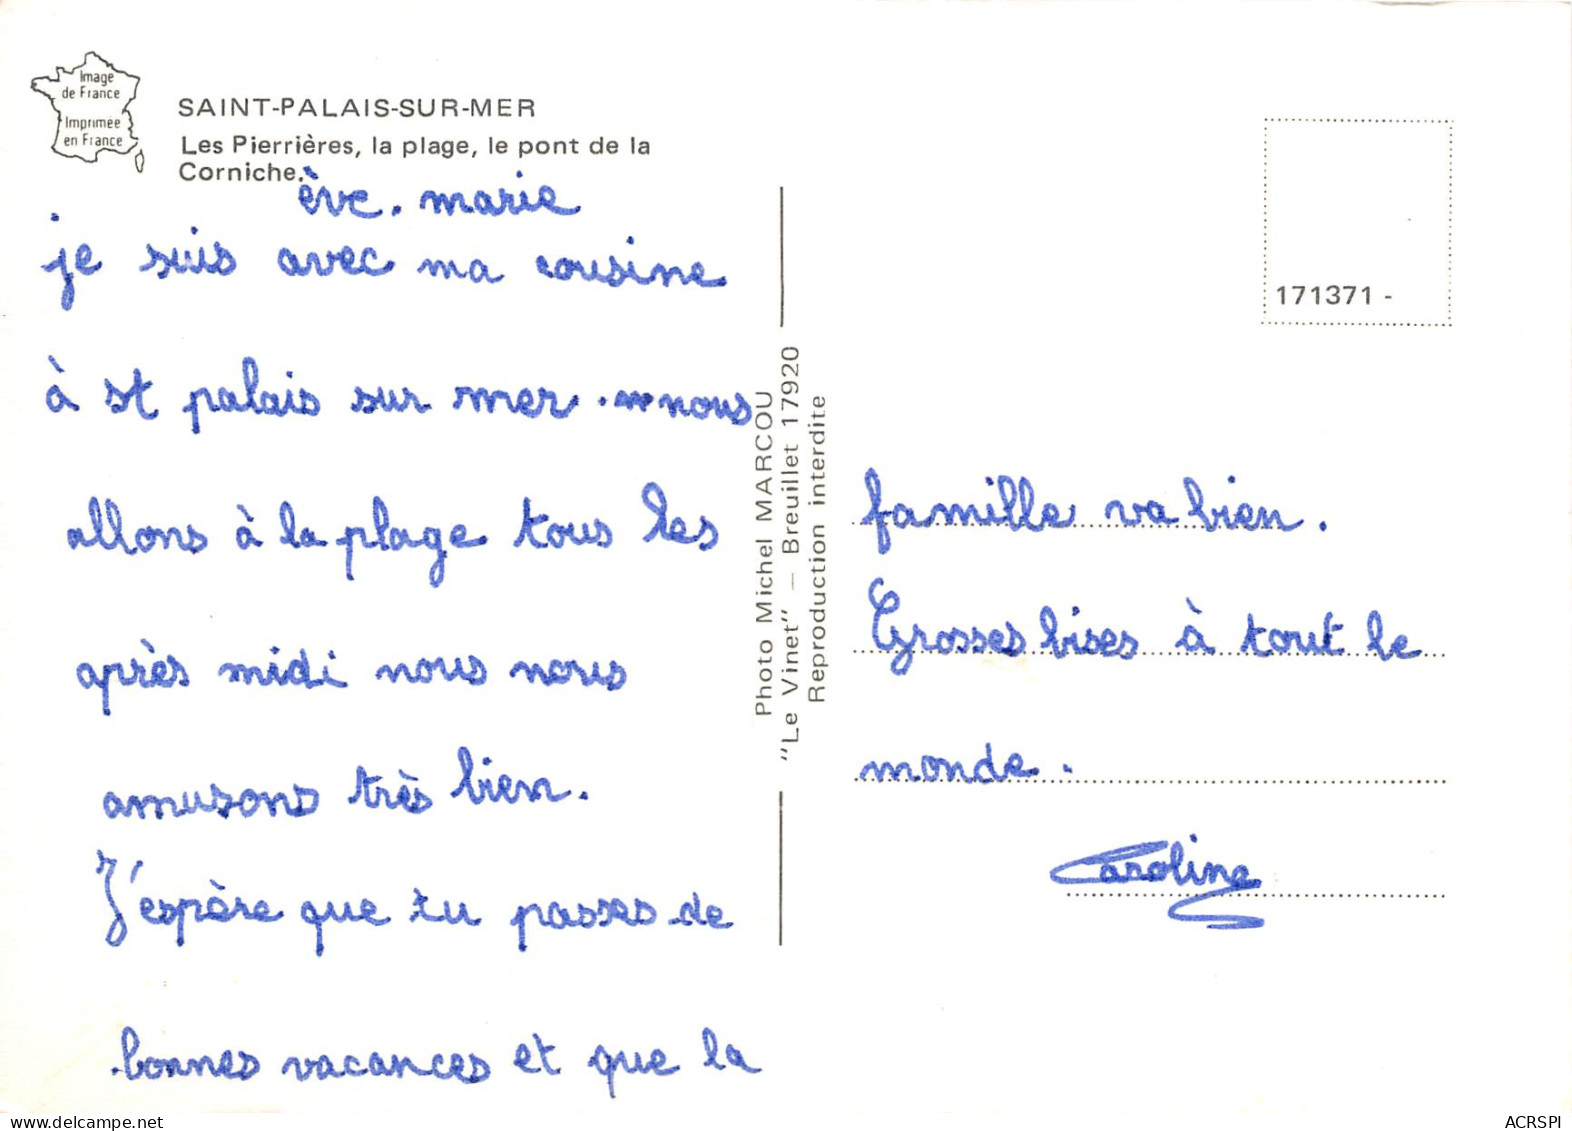 Image
de France
Imprimée
en France
SAINT-PALAIS-SUR-MER
Les Pierrières, la plage, le pont de la
Corniche.
ève. marie
je suis avec ma cousine
à st palais sur mer. nous
allons à la plage tous les
après midi nous nous
amusons très bien.
J'espère que tu passes de
bonnes vacances et que la
Photo Michel MARCOU
"Le Vinet" — Breuillet 17920
Reproduction interdite
171371 -
famille va bien.
Grosses bises à tout le
monde.
Caroline
delcampe.net
ACRSPI